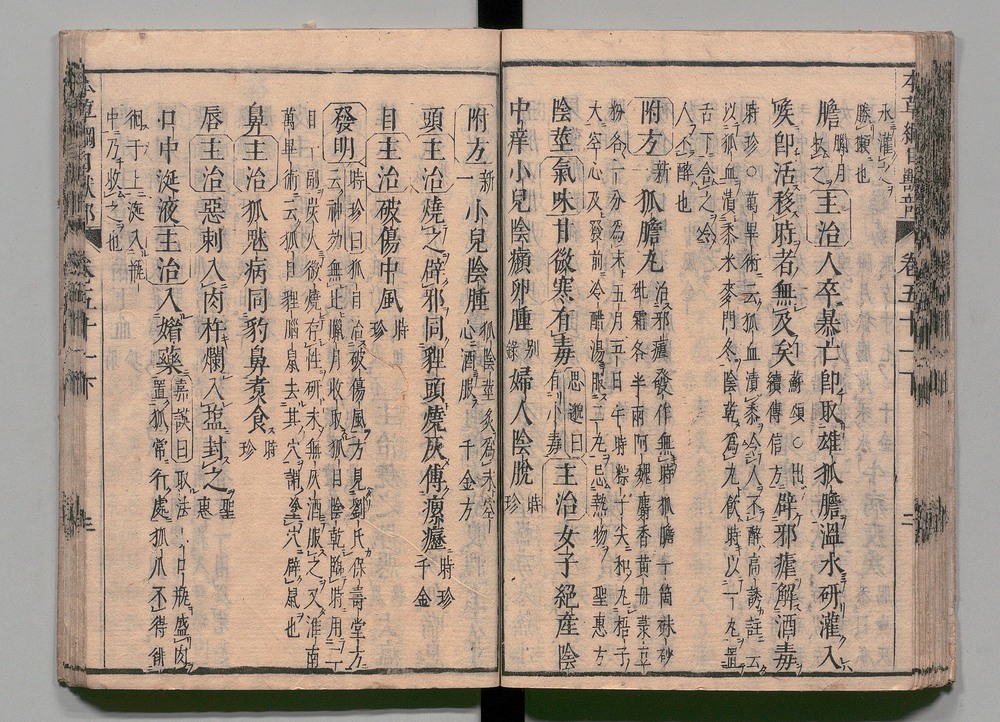 水灌之
膽 臘月收之 主治 人卒暴亡即取雄狐膽溫水研灌入
喉即活移時者無及矣 蘇頌○出續傳信方 辟邪瘧解酒毒
時珍○萬畢術云狐血漬黍令人不醉高誘註云
以狐血漬黍米麥門冬陰乾為丸飲時以一丸置
舌下含之令
人不醉也
附方 新一 狐膽丸 治邪瘧發作無時狐膽一箇硃砂
砒霜各半兩阿魏麝香黃丹菉豆
粉各一分為末五月五日午時粽子尖和丸梧子
大空心及發前冷醋湯服二丸忌熱物 聖惠方
陰莖 氣味 甘微寒有毒 思邈曰有小毒 主治 女子絕產陰
中痒小兒陰㿗卵腫 別錄 婦人陰脫 時珍
附方 新一 小兒陰腫 狐陰莖炙為末空心酒服 千金方
頭 主治 燒之辟邪同貍頭燒灰傅瘰癧 時珍 千金
目 主治 破傷中風 時珍
發明 時珍曰狐目治破傷風方見劉氏保壽堂方
云神効無比臘月收取狐目陰乾臨時用二
目一副炭火微燒存性研末無灰酒服之又淮南
萬畢術云狐目貍腦鼠去其穴謂塗穴辟鼠也
鼻 主治 狐魅病同豹鼻煮食 時珍
唇 主治 惡刺入肉杵爛入鹽封之 聖惠
口中涎液 主治 入媚藥 嘉謨曰取法小口瓶盛肉
置狐常行處狐爪不得徘
徊于上涎入瓶
中乃收之也
本草綱目獸部 卷五十一下